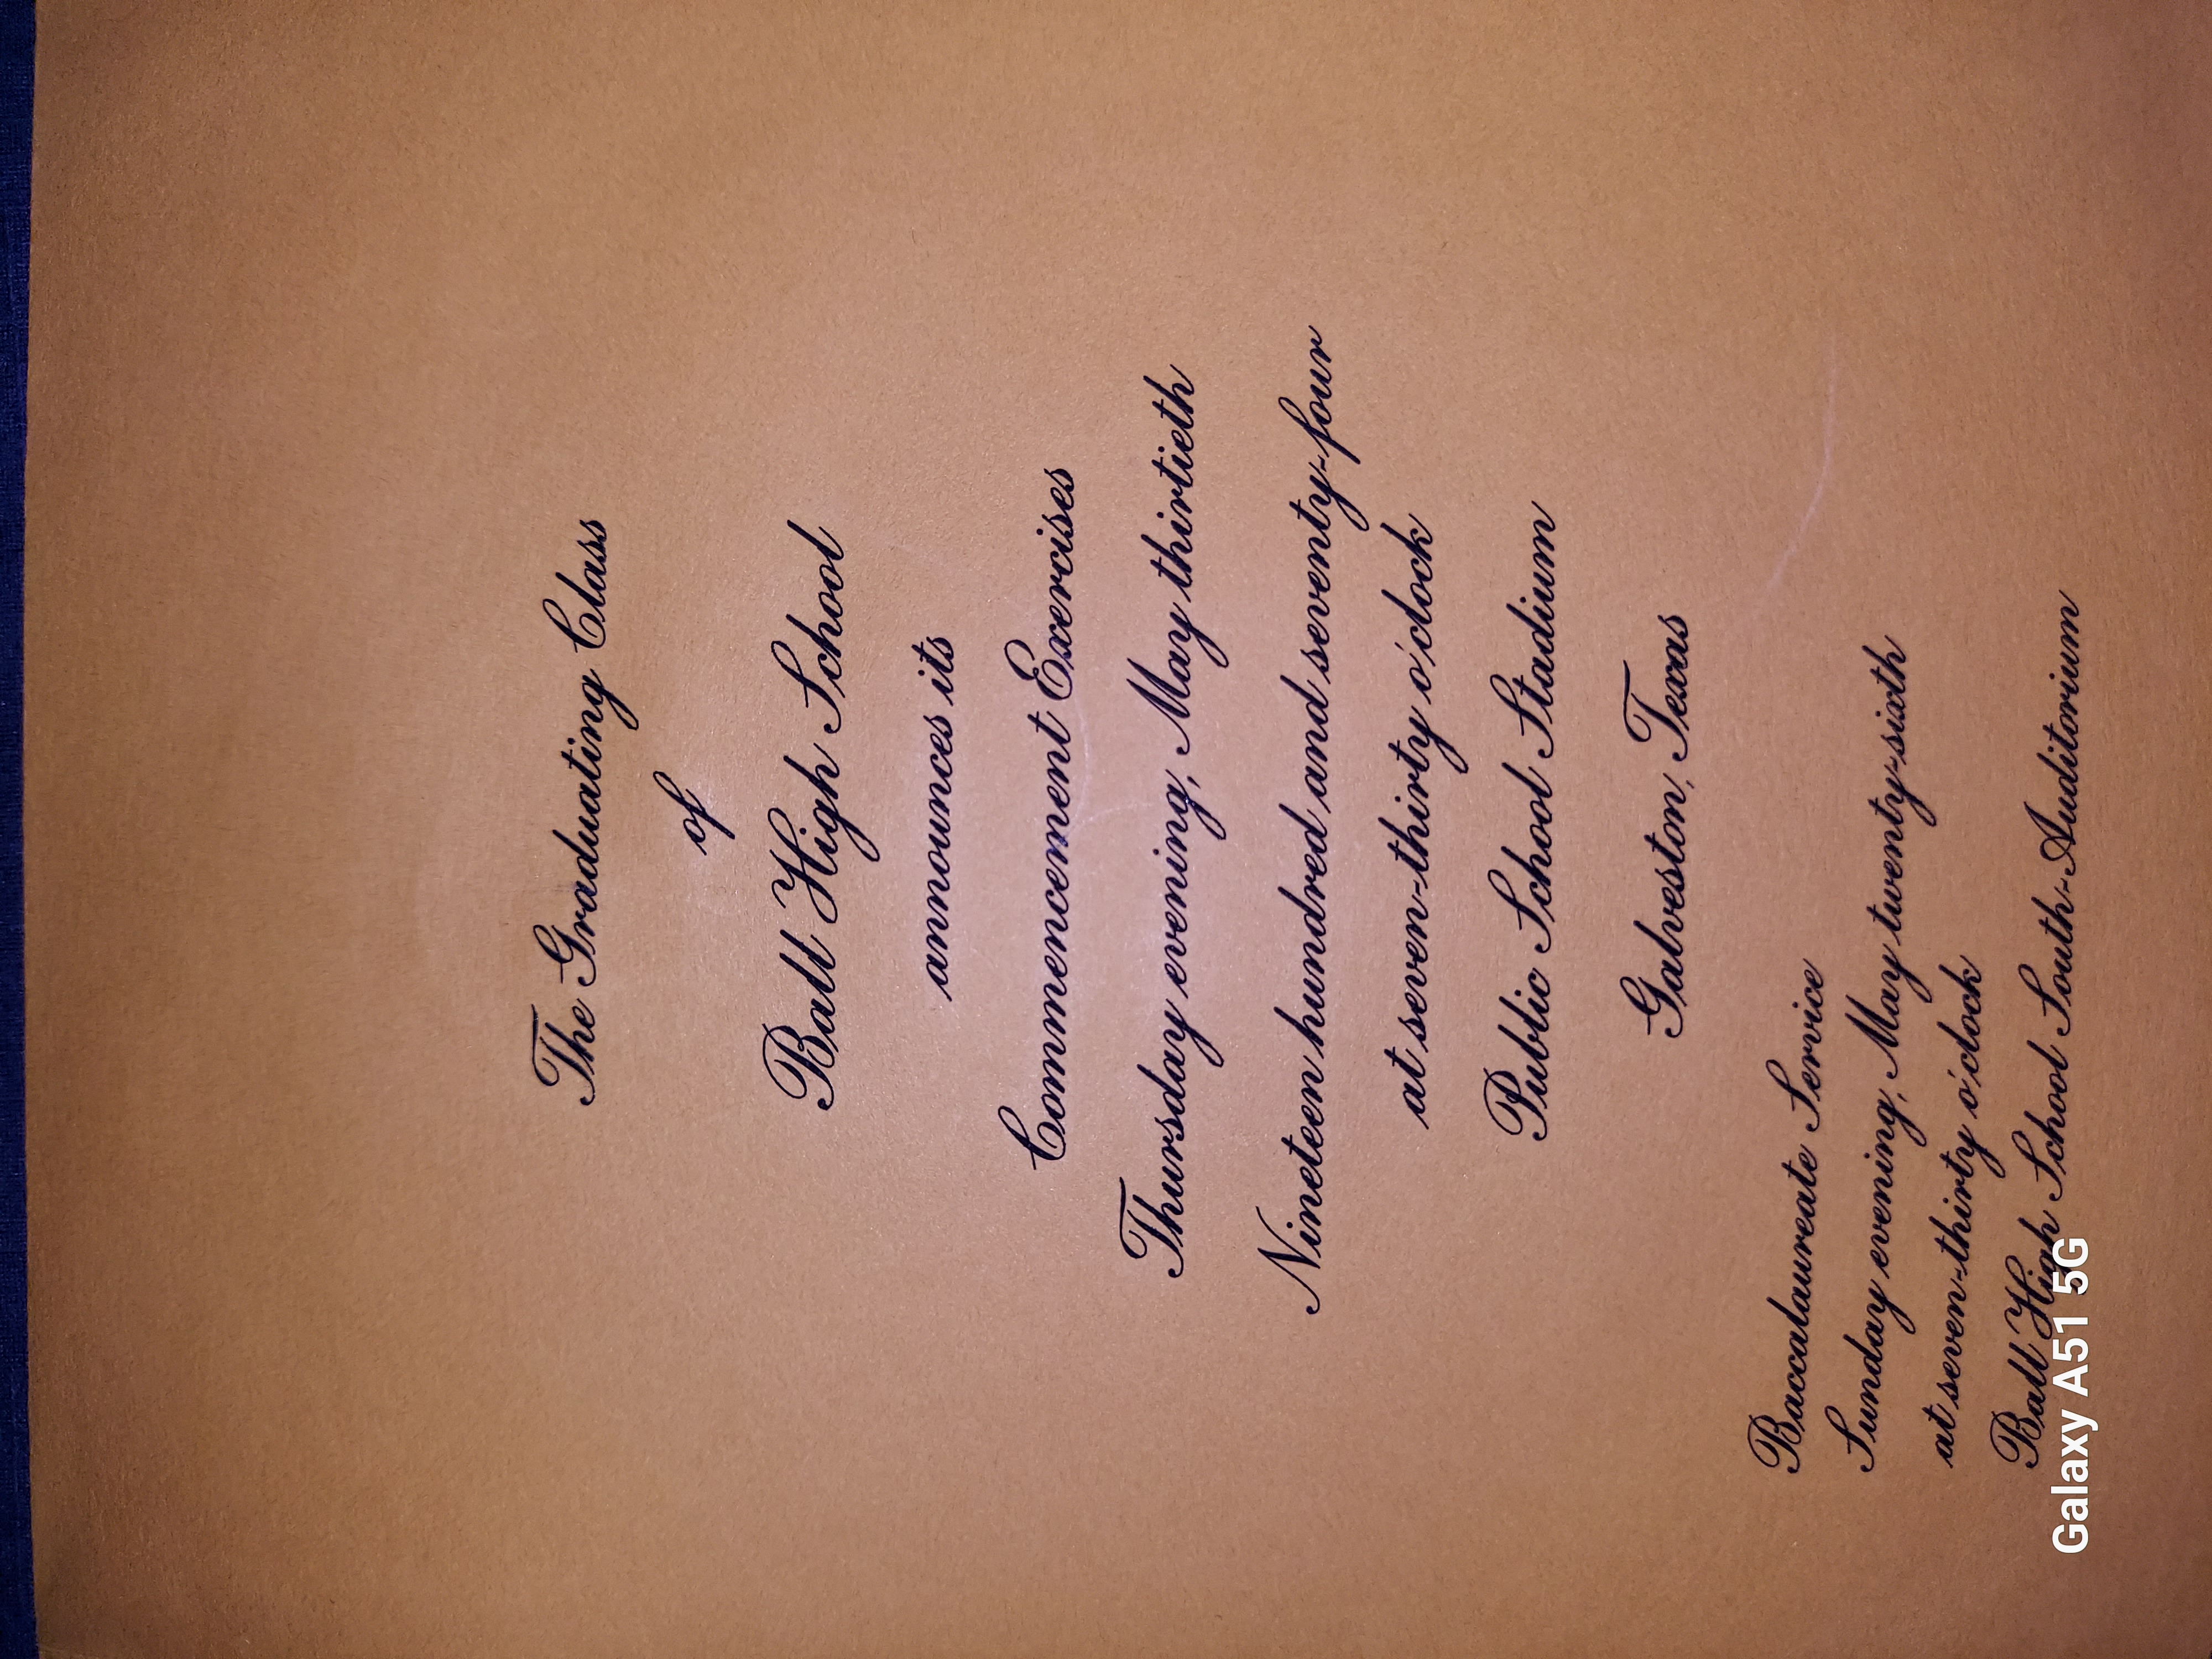 The Graduating Class
of
Ball High School
announces its
Commencement Exercises
Thursday evening, May thirtieth
Nineteen hundred and seventy-four
at seven-thirty o'clock
Public School Stadium
Galveston, Texas
Baccalaureate Service
Sunday evening, May twenty-sixth
at seven-thirty o'clock
Ball High School South-Auditorium
Galaxy A51 5G